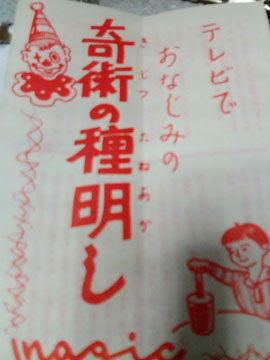 テレビで
おなじみの
奇術の種明し
きじつ たねあか
magic